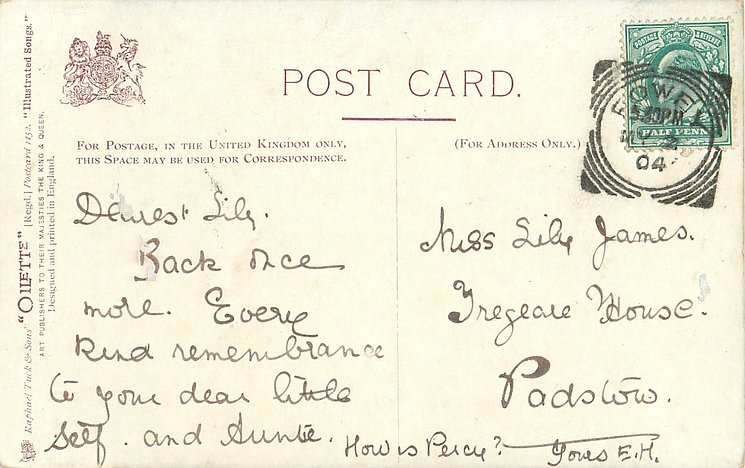 POST CARD.
FOR POSTAGE, IN THE UNITED KINGDOM ONLY,
THIS SPACE MAY BE USED FOR CORRESPONDENCE.
(FOR ADDRESS ONLY.)
Dearest Lily.
Back once
more. Every
Kind remembrance
to your dear little
self. and Auntie.
How is Percy?
Yours E.H.
Miss Lily James.
Tregeare House.
Padstow.
POSTAGE & REVENUE
HALF PENNY
04
Raphael Tuck & Sons' "OILETTE" [Regd.] Postcard 1152. "Illustrated Songs."
ART PUBLISHERS TO THEIR MAJESTIES THE KING & QUEEN.
Designed and printed in England.